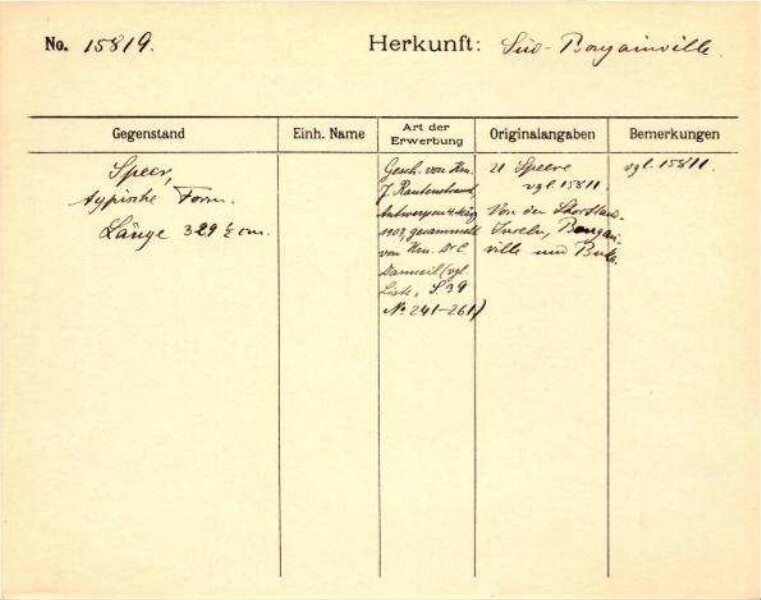 No. 15819. Herkunft: Süd-Bougainville.
Gegenstand Einh. Name Art der Erwerbung Originalangaben Bemerkungen
Speer,
typische Form.
Länge 329 ½ cm.
Gesch. von Hrn.
J. Rautenstrauch,
Antwerpen 4. März
1903, gesammelt
von Hrn. Dr C
Danneil (vgl.
Liste, S. 39
No 241-261)
21 Speere
vgl. 15811.
Von den Shortland-
Inseln, Bougain-
ville und Buka.
vgl. 15811.